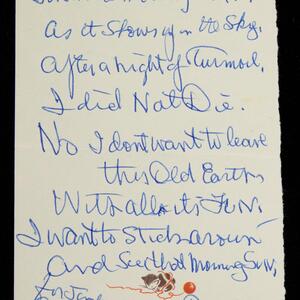 As it Shows up in the Sky.
After a night of Turmoil,
I did Not Die.
No I dont want to leave
this Old Earth
With all its Fun.
I want to Stick aroun
And See that Morning Sun,